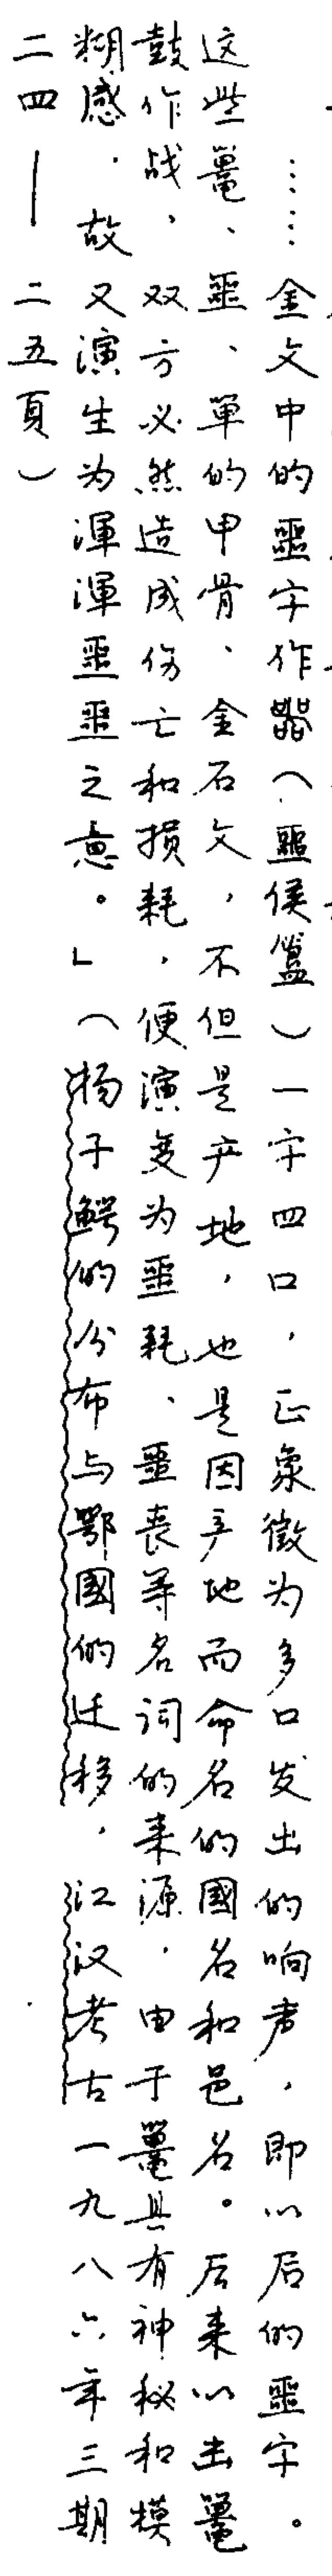 ……金文中的噩字作𠾂（噩侯簋）一字四口，正象徵为多口发出的响声，即以后的噩字。
这些鼍、噩、單的甲骨、金石文，不但是产地，也是因产地而命名的國名和邑名。后来以出鼍
鼓作战，双方必然造成伤亡和损耗，便演变为噩耗、噩丧等名词的来源，由于鼍具有神秘和模
糊感，故又演生为渾渾噩噩之意。」（杨子鳄的分布与鄂國的迁移，江汉考古一九八六年三期
二四——二五頁）